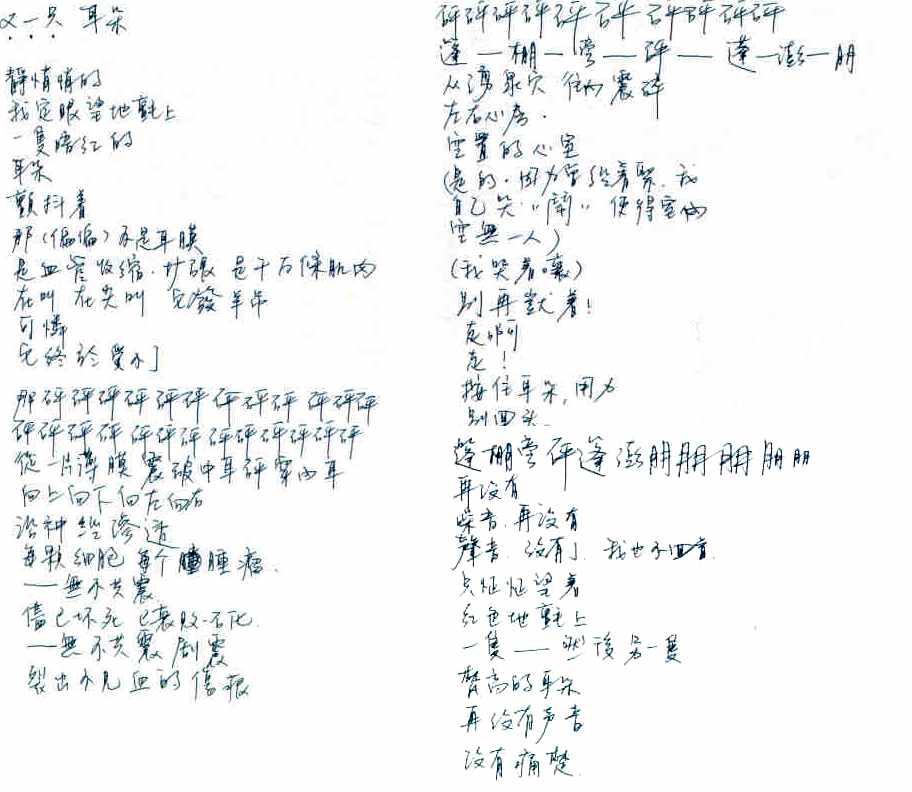 又一只 耳朵
靜悄悄的
我定眼望地氈上
一隻暗红的
耳朵
顫抖着
那(偏偏)不是耳膜
是血管收缩·扩張 是千万條肌肉
在叫 在尖叫 它發羊吊
可憐
它終於受不了
那砰砰砰砰砰砰砰砰砰砰砰砰
砰砰砰砰砰砰砰砰砰砰砰砰砰
從一片薄膜震破中耳砰穿内耳
向上向下向左向右
沿神經滲透
每顆细胞 每个腫瘤
——無不共震
儘已坏死 已衰败·石化
——無不共震 剧震
裂出不見血的傷痕
砰砰砰砰砰砰砰砰砰砰
蓬—棚—嘭—砰—蓬—澎—朋
从湧泉穴 往内震碎
左右心房·
空置的心室
(是的·因为曾經着緊 我
自己哭"鬧" 使得室内
空無一人)
(我哭着嚷)
別再獃着!
走啊
走!
按住耳朵,用力
別回头
蓬棚嘭砰蓬澎朋朋朋朋朋
再没有
噪音 再没有
聲音 没有了 我也不回首
只怔怔望着
红色地氈上
一隻——然後另一隻
聳高的耳朵
再没有声音
没有痛楚